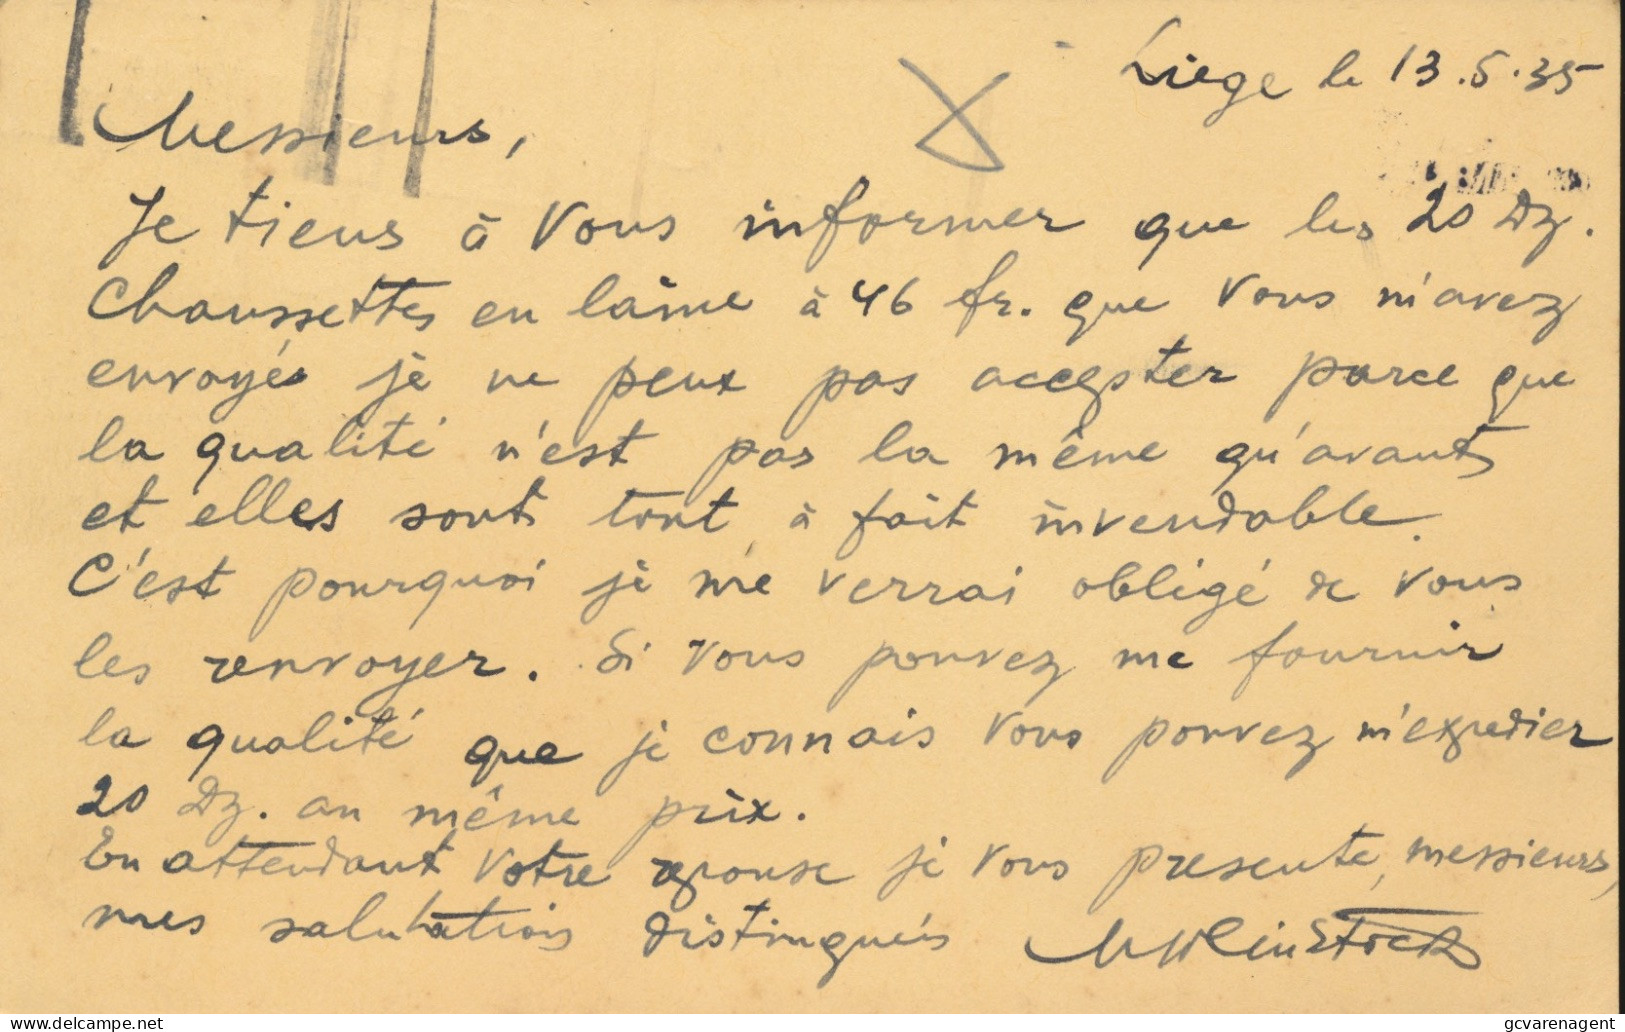 Liège le 13.5.35
Messieurs,
Je tiens à Vous informer que les 20 Dz.
Chaussettes en laine à 46 fr. que Vous m'avez
envoyés je ne peux pas accepter parce que
la qualité n'est pas la même qu'avant
et elles sont tout à fait invendable.
C'est pourquoi je me verrai obligé de vous
les renvoyer. Si vous pouvez me fournir
la qualité que je connais vous pouvez m'expedier
20 Dz. au même prix.
En attendant Votre reponse je vous presente, messieurs,
mes salutations distingués
delcampe.net
gcvarenagent